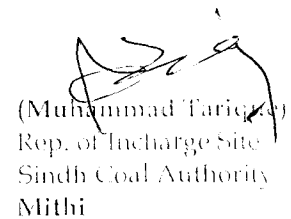 (Muhammad Tarique)
Rep. of Incharge Site
Sindh Coal Authority
Mithi